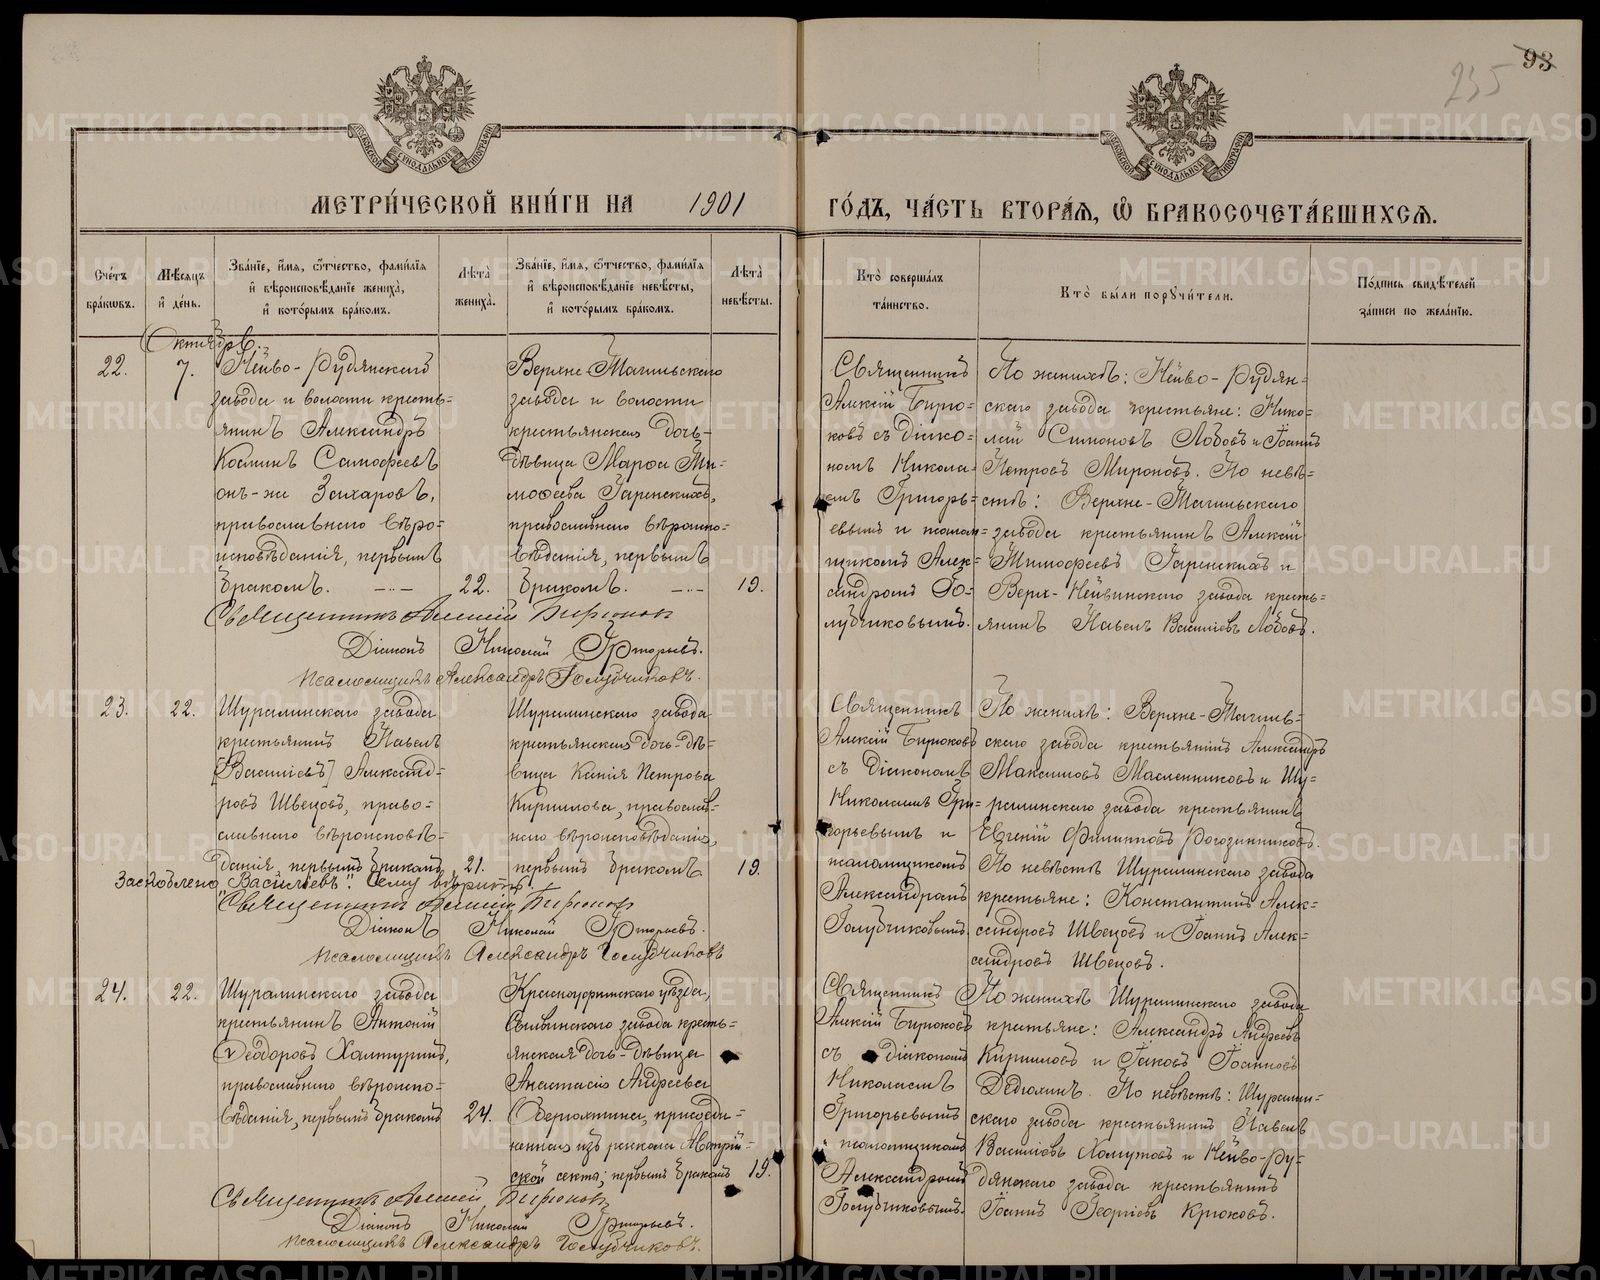 93
235
МЕТРИ́ЧЕСКОЙ КНИ́ГИ НА 1901 ГО́ДЪ, ЧА́СТЬ ВТОРА́Я, Ѡ҆ БРАКОСОЧЕТА́ВШИХСЯ.
Сче́тъ
бра́ковъ.
Мѣ́сяцъ
и҆ де́нь.
Зва́нїе, и҆́мя, ѻ҆́тчество, фами́лїя
и҆ вѣроисповѣ́данїе жениха̀,
и҆ кото́рымъ бра́комъ.
Лѣта̀
жениха̀.
Зва́нїе, и҆́мя, ѻ҆́тчество, фами́лїя
и҆ вѣроисповѣ́данїе невѣ́сты,
и҆ кото́рымъ бра́комъ.
Лѣта̀
невѣ́сты.
Кто̀ соверша́лъ
та́инство.
Кто̀ бы́ли порꙋчи́тели.
По́дпись свидѣ́телей
за́писи по жела́нїю.
Октябрь.
22.
7.
Нейво-Рудянскаго
завода и волости кресть-
янинъ Александръ
Косминъ Самофеевъ
онъ-же Захаровъ,
православнаго вѣро-
исповѣданія, первымъ
бракомъ.
22.
Верхне-Тагильскаго
завода и волости
крестьянская дочь-
дѣвица Марѳа Ти-
моѳеева Гаренскихъ,
православнаго вѣроиспо-
вѣданія, первымъ
бракомъ.
19.
Священникъ
Алексій Бирю-
ковъ съ діако-
номъ Никола-
емъ Григорь-
евымъ и псалом-
щикомъ Алек-
сандромъ Го-
лубчиковымъ.
По женихѣ: Нейво-Рудян-
скаго завода крестьяне: Нико-
лай Симоновъ Лобовъ и Іоаннъ
Петровъ Мироновъ. По невѣ-
стѣ: Верхне-Тагильскаго
завода крестьянинъ Алексій
Тимофеевъ Гаренскихъ и
Верх-Нейвинскаго завода кресть-
янинъ Павелъ Василіевъ Лобовъ.
Священникъ Алексій Бирюковъ
Діаконъ Николай Григорьевъ.
Псаломщикъ Александръ Голубчиковъ.
23.
22.
Шуралинскаго завода
крестьянинъ Павелъ
[Василіевъ] Александ-
ровъ Швецовъ, право-
славнаго вѣроисповѣ-
данія, первымъ бракомъ
21.
Шуралинскаго завода
крестьянская дочь-дѣ-
вица Ксенія Петрова
Кириллова, православ-
наго вѣроисповѣданія,
первымъ бракомъ.
19.
Священникъ
Алексій Бирюковъ
съ діакономъ
Николаемъ Гри-
горьевымъ и
псаломщикомъ
Александромъ
Голубчиковымъ.
По женихѣ: Верхне-Тагиль-
скаго завода крестьянинъ Александръ
Максимовъ Масленниковъ и Шу-
ралинскаго завода крестьянинъ
Евгеній Филипповъ Рогозинниковъ.
По невѣстѣ Шуралинскаго завода
крестьяне: Константинъ Алек-
сандровъ Швецовъ и Іоаннъ Алек-
сандровъ Швецовъ.
Заскоблено "Василіевъ". Сему вѣрить.
Священникъ Алексій Бирюковъ
Діаконъ Николай Григорьевъ.
Псаломщикъ Александръ Голубчиковъ
24.
22.
Шуралинскаго завода
крестьянинъ Антоній
Ѳеодоровъ Халтуринъ,
православнаго вѣроиспо-
вѣданія, первымъ бракомъ
24.
Красноуфимскаго уѣзда,
Сылвинскаго завода кресть-
янская дочь-дѣвица
Анастасія Андреева
присоеди-
ненная изъ раскола Австрій-
ской секты, первымъ бракомъ
19.
Священникъ
Алексій Бирюковъ
съ діакономъ
Николаемъ
Григорьевымъ
и псаломщикомъ
Александромъ
Голубчиковымъ.
По женихѣ Шуралинскаго завода
крестьяне: Александръ Андреевъ
Кирилловъ и Іаковъ Іоанновъ
Дедюхинъ. По невѣстѣ: Шуралин-
скаго завода крестьянинъ Павелъ
Василіевъ Хомутовъ и Нейво-Ру-
дянскаго завода крестьянинъ
Іоаннъ Георгіевъ Крюковъ.
Священникъ Алексій Бирюковъ
Діаконъ Николай Григорьевъ.
Псаломщикъ Александръ Голубчиковъ.
METRIKI.GASO-URAL.RU